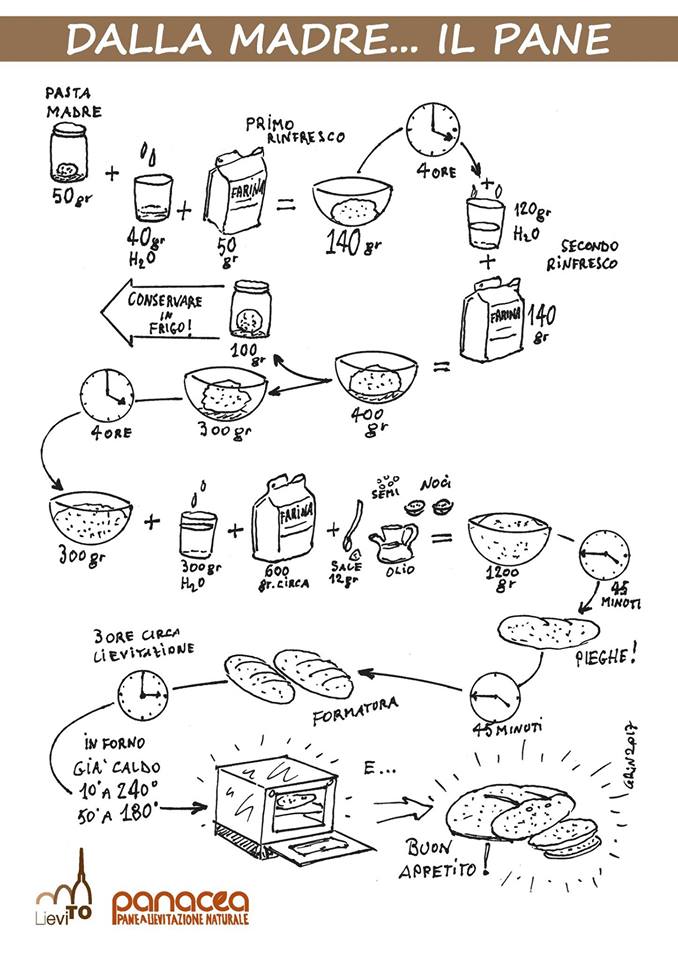 DALLA MADRE... IL PANE
PASTA
MADRE
50gr
+
40gr
H2O
+
FARINA
50
gr
PRIMO
RINFRESCO
=
140gr
4 ORE
+
120gr
H2O
+
SECONDO
RINFRESCO
FARINA
140
gr
=
400
gr
100
gr
CONSERVARE
IN
FRIGO!
300gr
4 ORE
300gr
+
300gr
H2O
+
FARINA
600
gr. CIRCA
+
SALE
12gr
SEMI
NOCI
OLIO
=
1200
gr
45
MINUTI
PIEGHE!
45 MINUTI
FORMATURA
3 ORE CIRCA
LIEVITAZIONE
IN FORNO
GIA' CALDO
10' A 240°
50' A 180°
E...
BUON
APPETITO!
GRIN2017
LieviTO
panacea
PANE A LIEVITAZIONE NATURALE